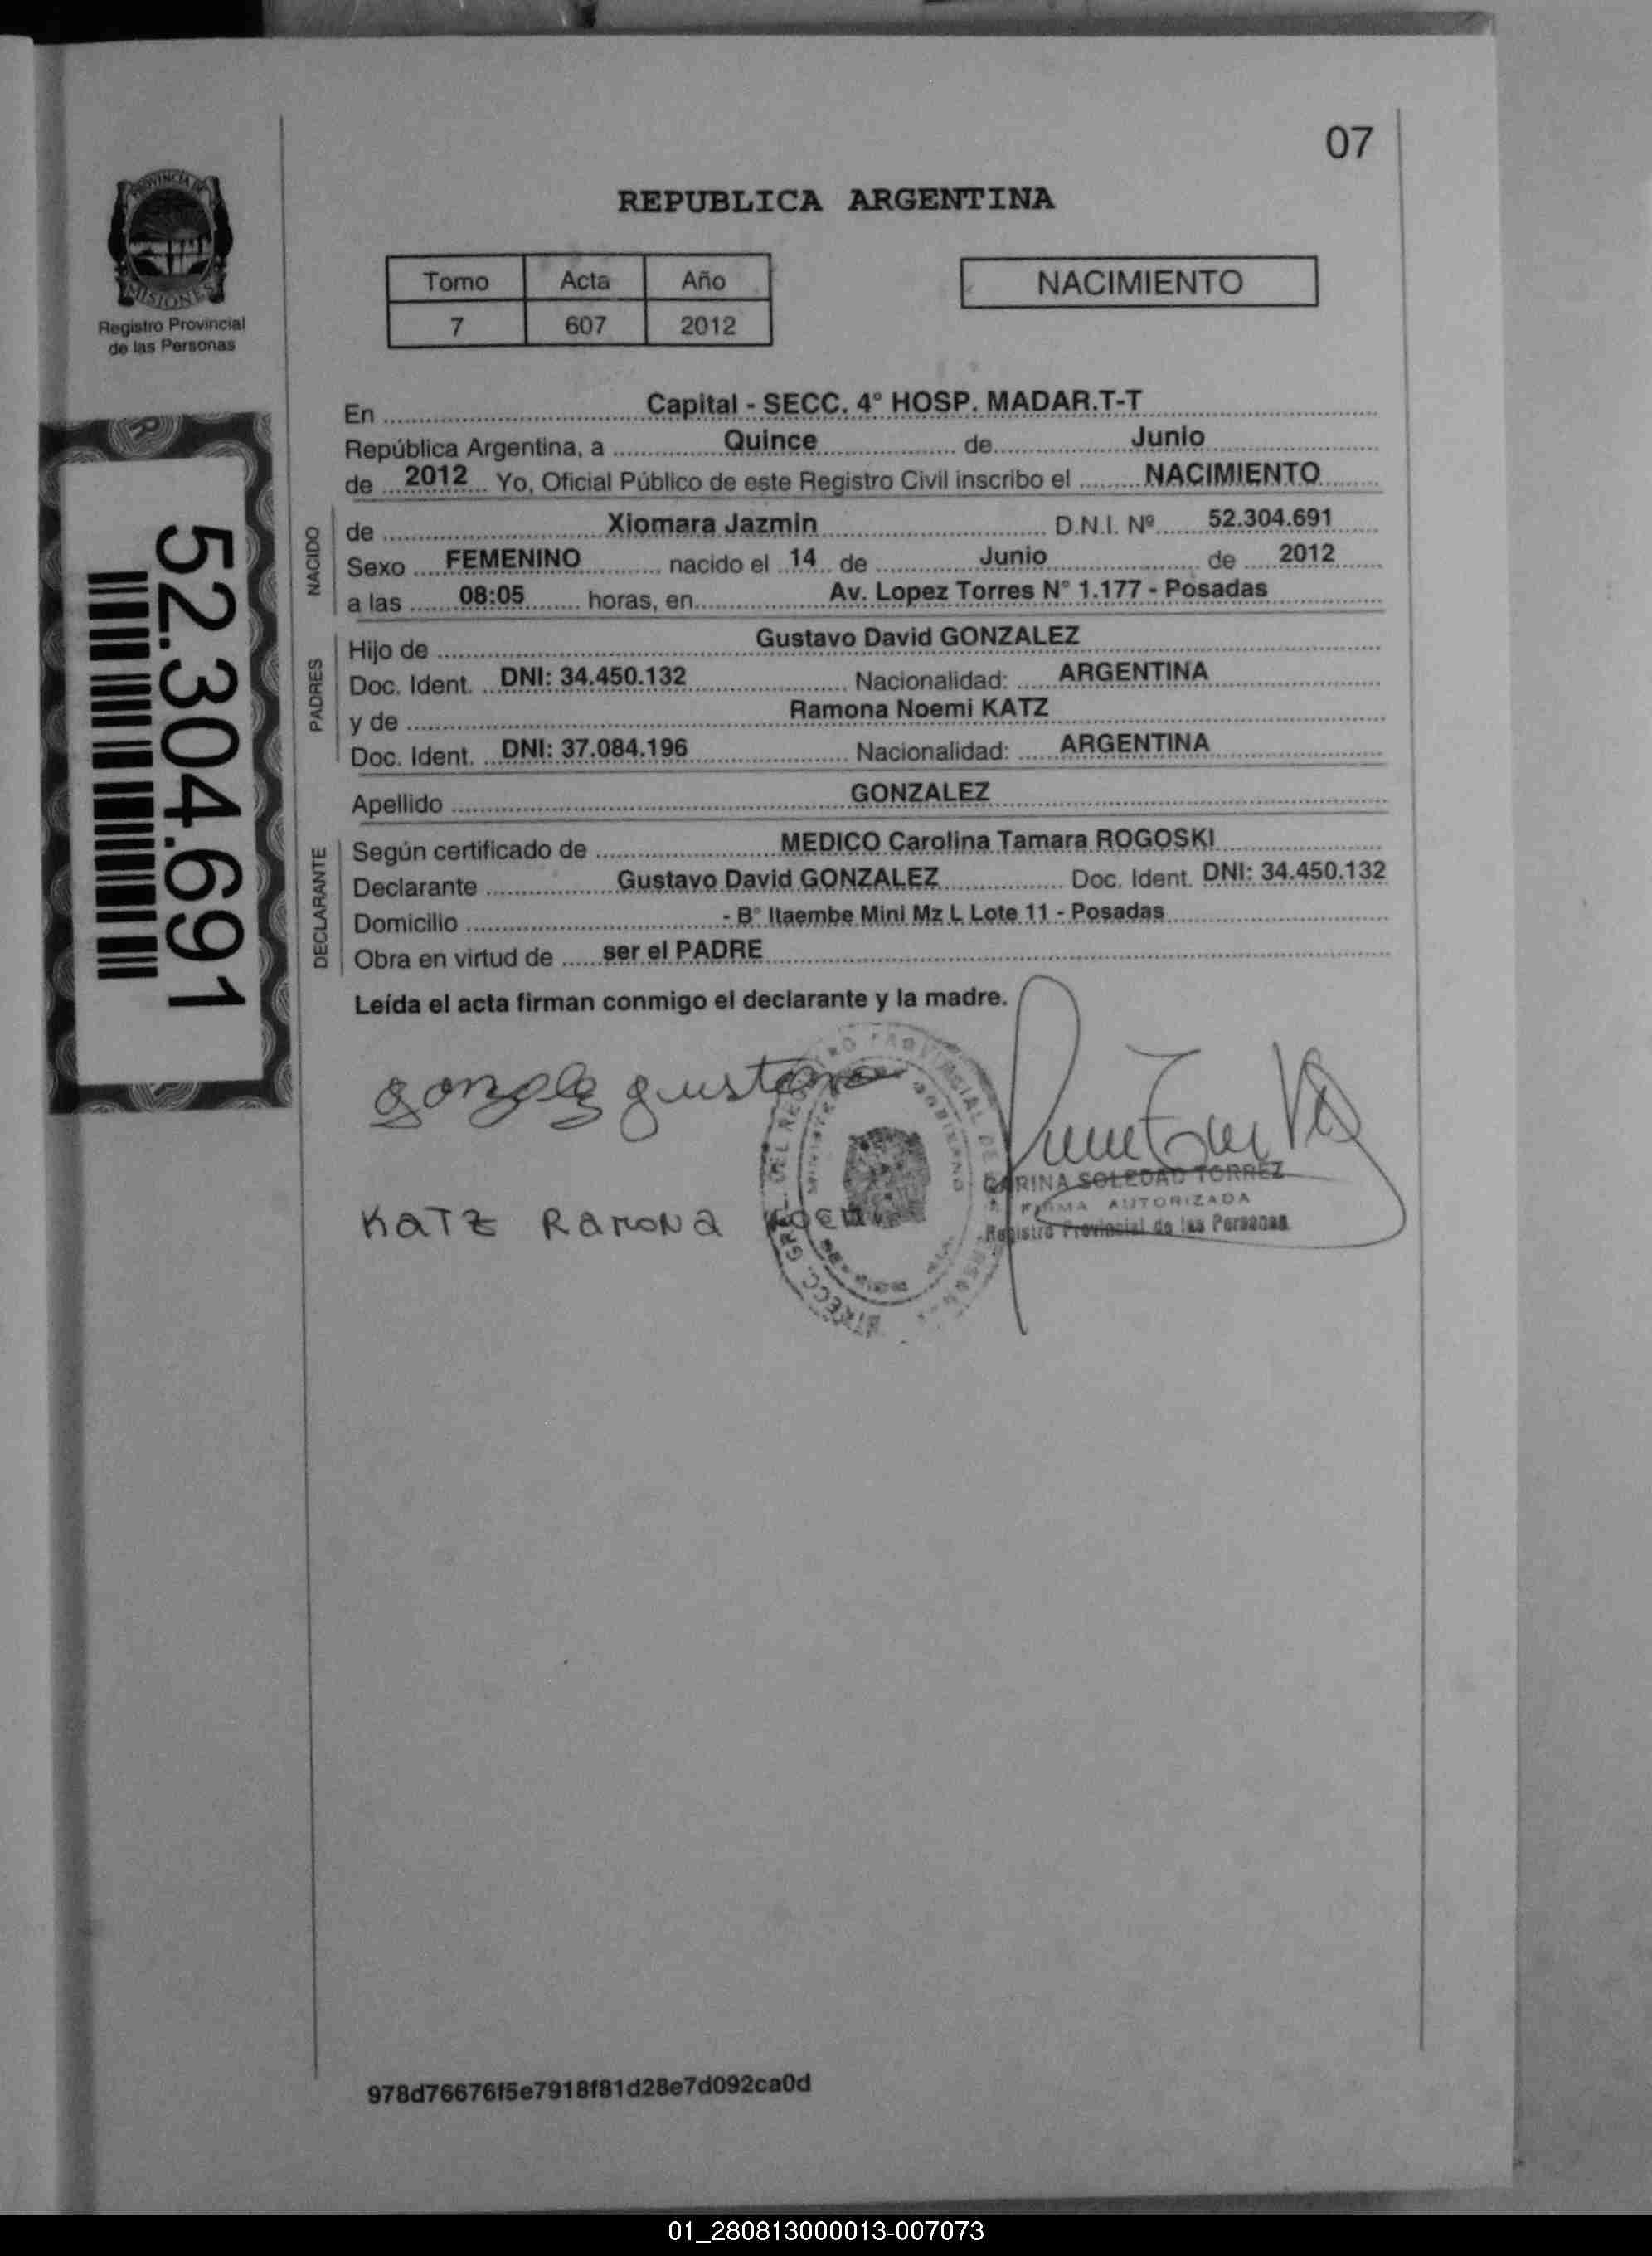 07
PROVINCIA DE
MISIONES
Registro Provincial
de las Personas
REPUBLICA ARGENTINA
Tomo Acta Año
7 607 2012
NACIMIENTO
52.304.691
En Capital - SECC. 4° HOSP. MADAR.T-T
República Argentina, a Quince de Junio
de 2012 Yo, Oficial Público de este Registro Civil inscribo el NACIMIENTO
NACIDO
de Xiomara Jazmin D.N.I. Nº 52.304.691
Sexo FEMENINO nacido el 14 de Junio de 2012
a las 08:05 horas, en Av. Lopez Torres N° 1.177 - Posadas
PADRES
Hijo de Gustavo David GONZALEZ
Doc. Ident. DNI: 34.450.132 Nacionalidad: ARGENTINA
y de Ramona Noemi KATZ
Doc. Ident. DNI: 37.084.196 Nacionalidad: ARGENTINA
Apellido GONZALEZ
DECLARANTE
Según certificado de MEDICO Carolina Tamara ROGOSKI
Declarante Gustavo David GONZALEZ Doc. Ident. DNI: 34.450.132
Domicilio - B° Itaembe Mini Mz L Lote 11 - Posadas
Obra en virtud de ser el PADRE
Leída el acta firman conmigo el declarante y la madre.
gonzalez gustavo
KATZ RAMONA
CARINA SOLEDAD TORREZ
FIRMA AUTORIZADA
Registro Provincial de las Personas
978d76676f5e7918f81d28e7d092ca0d
01_280813000013-007073